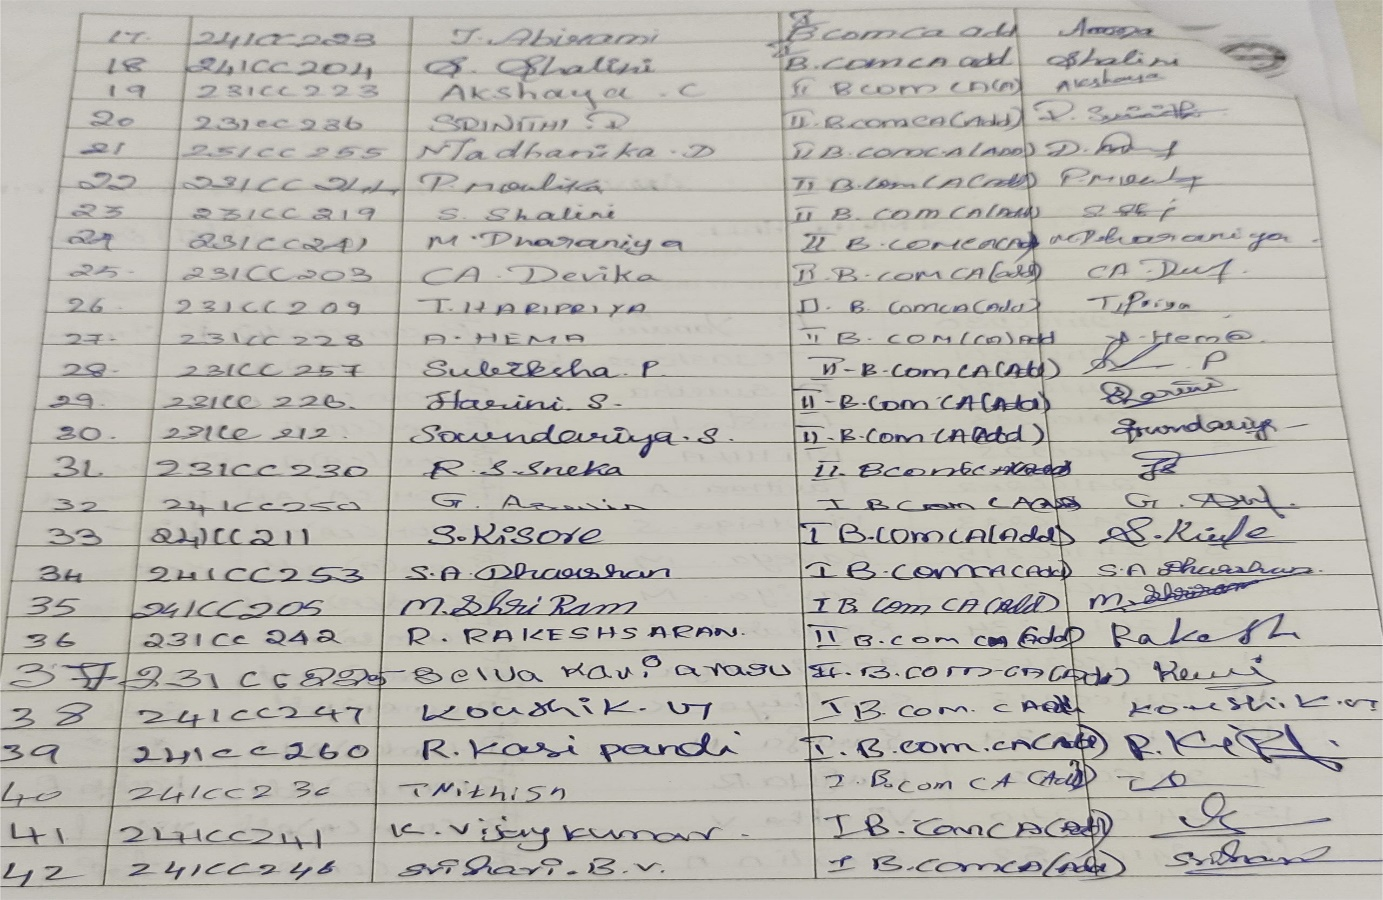 17. 241CC223 J. Abirami B.com ca add
18 241CC204 S. Shalini B.com CA add Shalini
19 231CC223 Akshaya . C II B com CA(A) Akshaya
20 231CC236 SRINITHI . D II. B.com CA(Add) D.
21 231CC255 Madhanika . D II B.com CA(ADD) D.
22 231CC244 P. Moulika II B.com CA(add) P.
23 231CC219 S. Shalini II B. com CA(add)
24 231CC241 M. Dharaniya II B. com CA(add) M Dharaniya
25. 231CC203 CA. Devika II. B. com CA(add) CA.
26. 231CC209 T. HARIPRIYA II. B. com CA(Add) T. Priya
27. 231CC 228 A. HEMA II B. COM(CA)add A. Hema
28. 231CC 257 Subiksha. P. II-B.com CA(Add) P
29. 231CC 226. Harini. S. II-B.Com CA(Add) Harini
30. 231CC 212. Soundariya. S. II-B.Com CA(Add) Soundariya
31. 231CC230 R. S. Sneka II. Bcom
32 241CC250 G. I B Com CA G.
33 241CC211 S. Kisore I B.COM CA(Add) S.
34 241CC253 S.A. Dharshan I B.COM CA(Add) S.A Dharshan
35 241CC205 M. Shri Ram I B Com CA(add) M.
36 231CC 242 R. RAKESHSARAN. II B.com ca (Add) Rakesh
37 231CC Selva Kavi arasu II. B.com-ca(add)
38 241CC247 Koushik. M I B.com. CA Koushik.M
39 241CC260 R. Kasi pandi I. B.com.CA(Add) R.
40 241CC230 T Nithish I. B.com CA (Add)
41 241CC241 K. Vijay kumar. I B.Com CA(Add)
42 241CC246 Srihari. B.V. I B.com CA(Add) Srihari